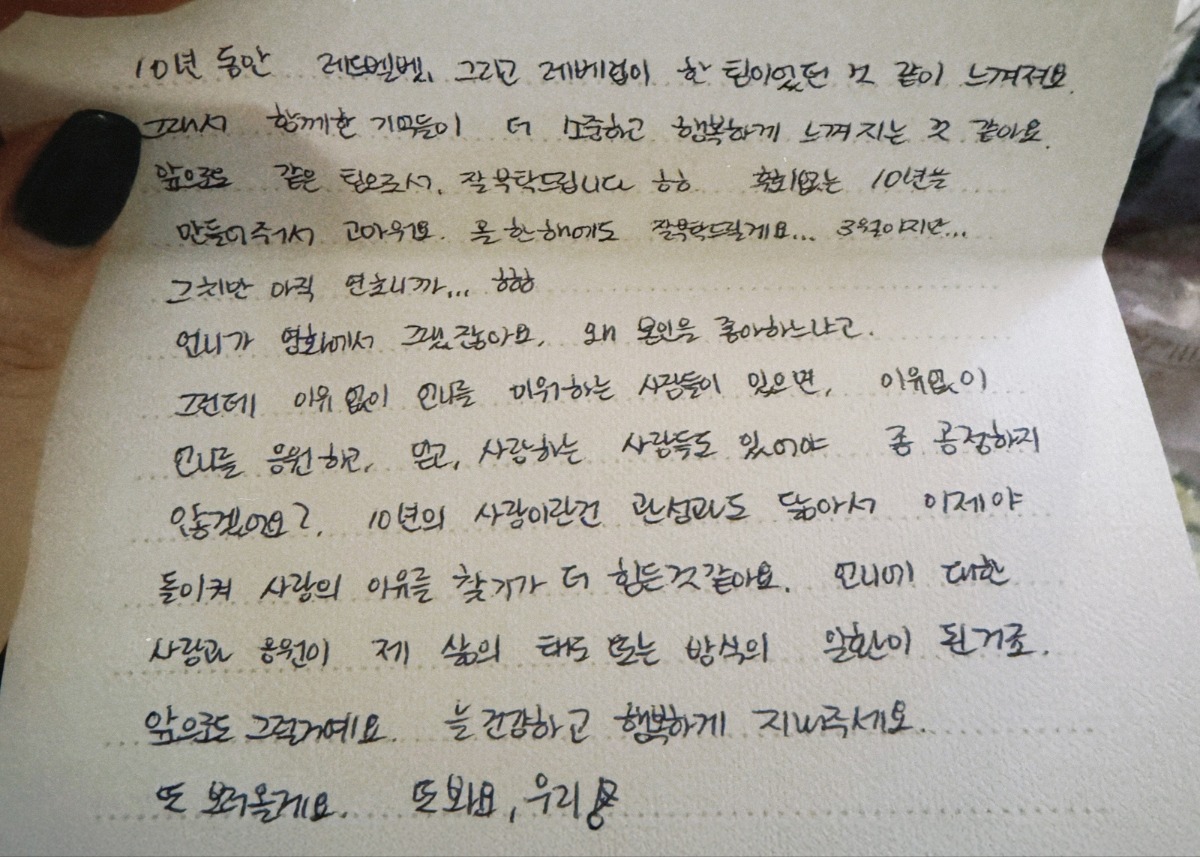 10년 동안 레드벨벳, 그리고 레베럽이 한 팀이었던 것 같이 느껴져요.
그래서 함께한 기억들이 더 소중하고 행복하게 느껴지는 것 같아요.
앞으로도 같은 팀으로서, 잘 부탁드립니다 ㅎㅎ 후회없는 10년을
만들어주셔서 고마워요. 올 한해에도 잘부탁드릴게요... 3월이지만...
그치만 아직 연초니까... ㅎㅎㅎ
언니가 영화에서 그랬잖아요, 왜 본인을 좋아하느냐고.
그런데 이유 없이 언니를 미워하는 사람들이 있으면, 이유없이
언니를 응원하고, 믿고, 사랑하는 사람들도 있어야 좀 공정하지
않겠어요?, 10년의 사랑이란건 관성과도 닮아서 이제야
돌이켜 사랑의 이유를 찾기가 더 힘든것같아요. 언니에 대한
사랑과 응원이 제 삶의 태도 또는 방식의 일환이 된거죠.
앞으로도 그럴거예요. 늘 건강하고 행복하게 지내주세요.
또 보러올게요. 또 봐요, 우리